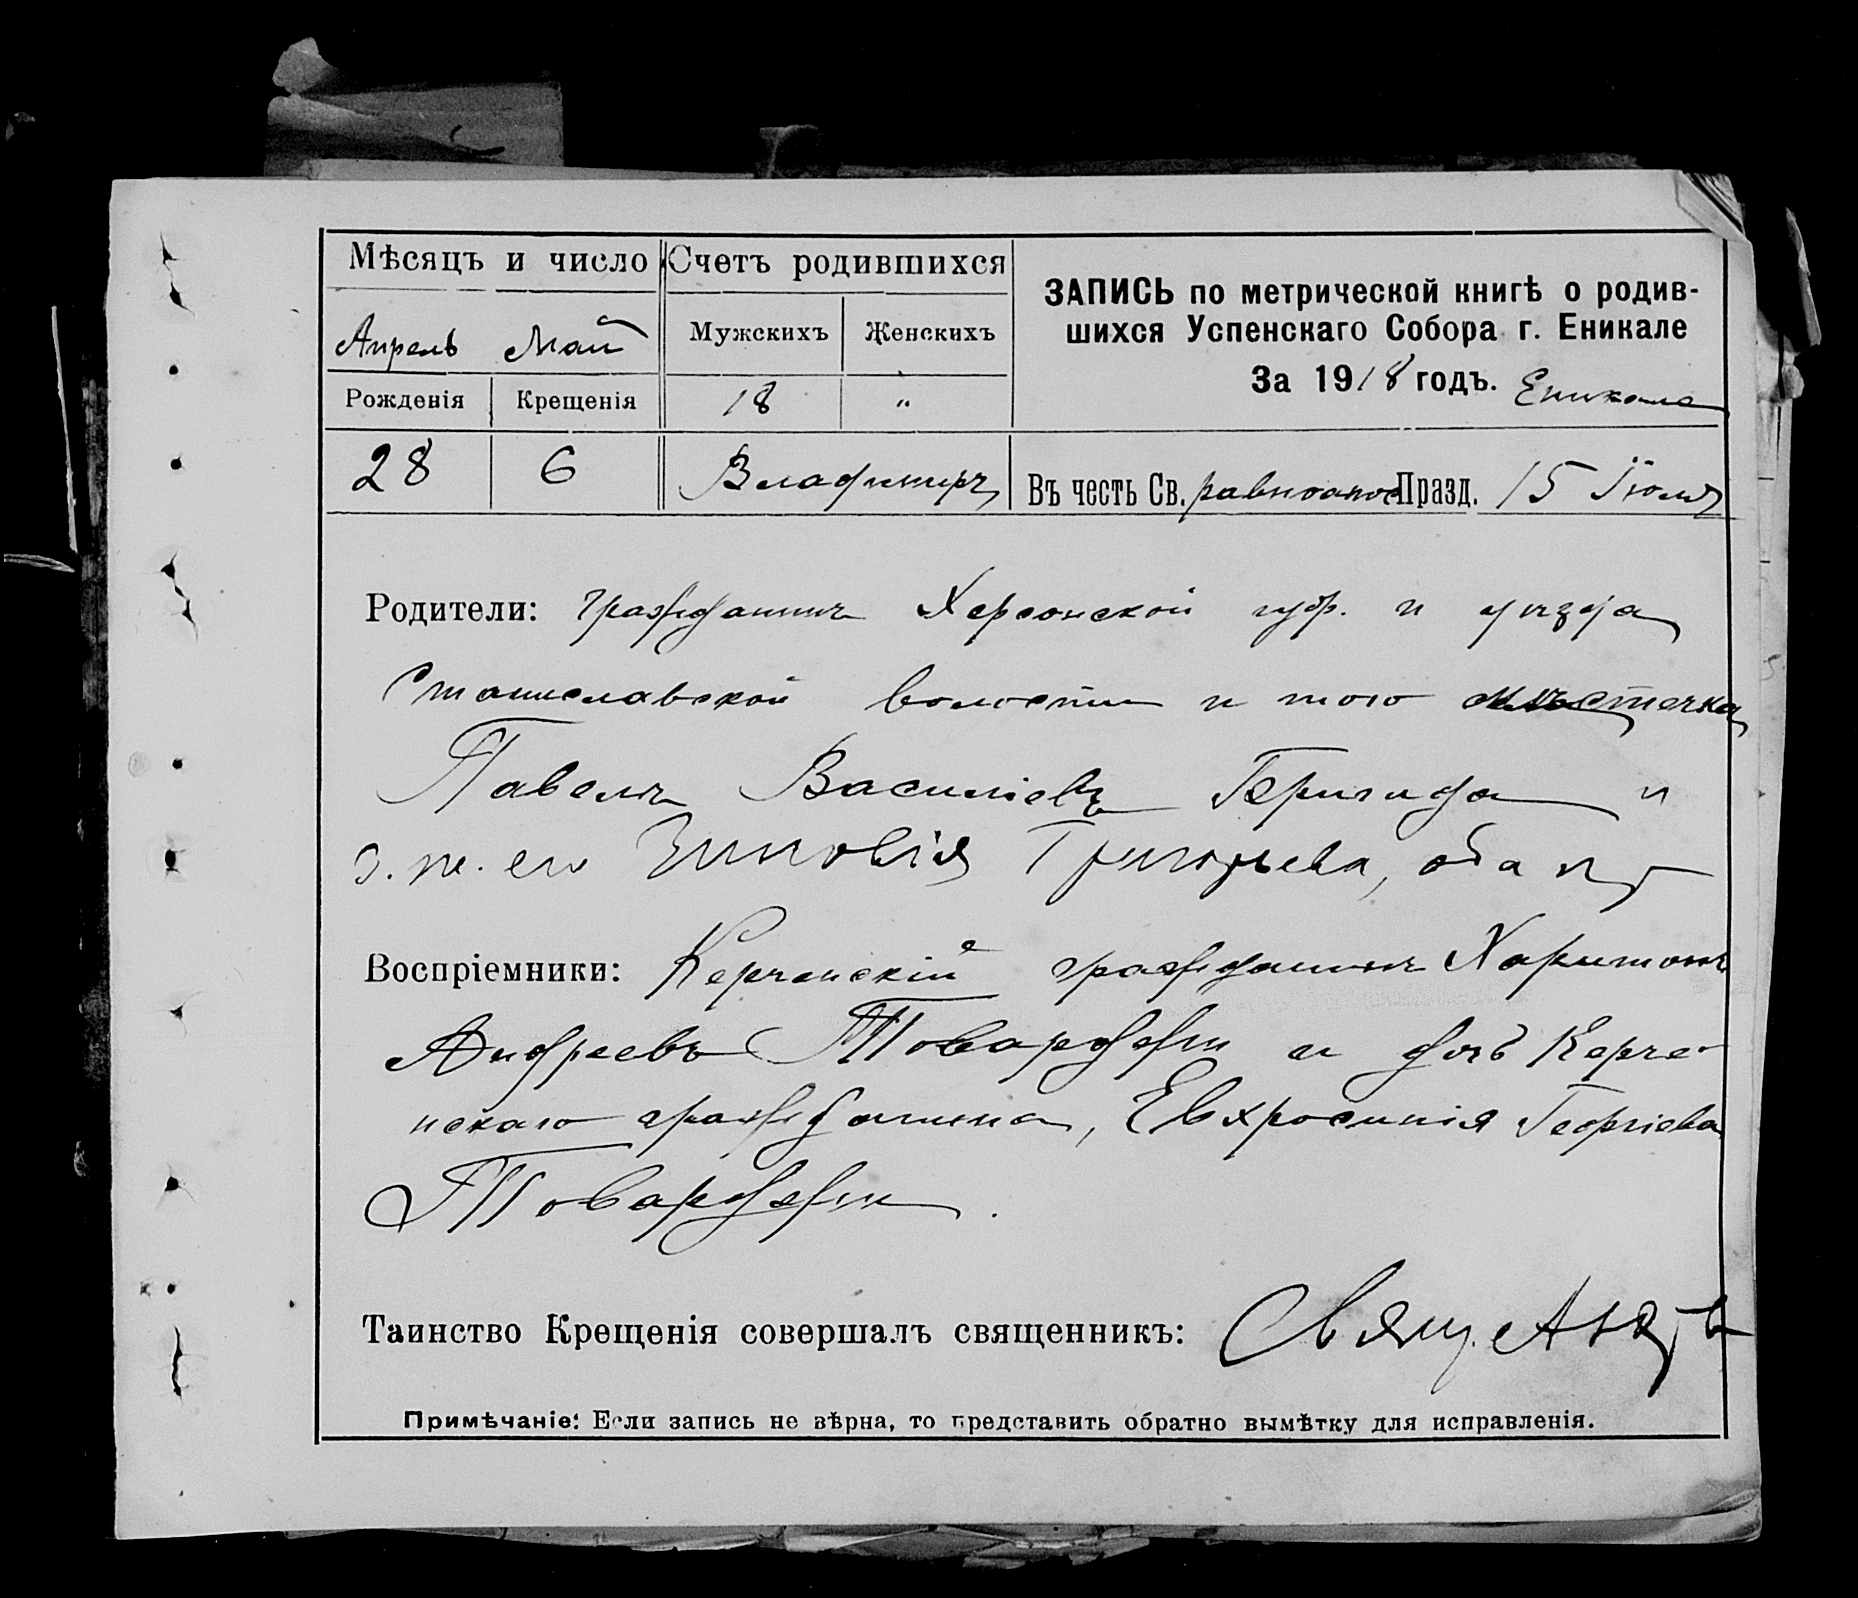 Мѣсяцъ и число Счетъ родившихся
ЗАПИСЬ по метрической книгѣ о родив-
шихся Успенскаго Собора г. Еникале
За 1918 годъ. Еникале
Апрель Май Мужскихъ Женскихъ
Рожденія Крещенія 18 "
28 6 Владимиръ Въ честь Св. равноапос Празд. 15 Іюля
Родители: гражданинъ Херсонской губ. и уѣзда
Станиславской волости и того мѣстечка
Павелъ Василіевъ и
з. ж. его Зиновія Григорьева, оба пр
Воспріемники: Керченскій гражданинъ Харитонъ
Андреевъ и дочь Керче-
нскаго гражданина, Евхросинія Георгіева
Таинство Крещенія совершалъ священникъ: Свящ.
Примѣчаніе: Если запись не вѣрна, то представить обратно вымѣтку для исправленія.